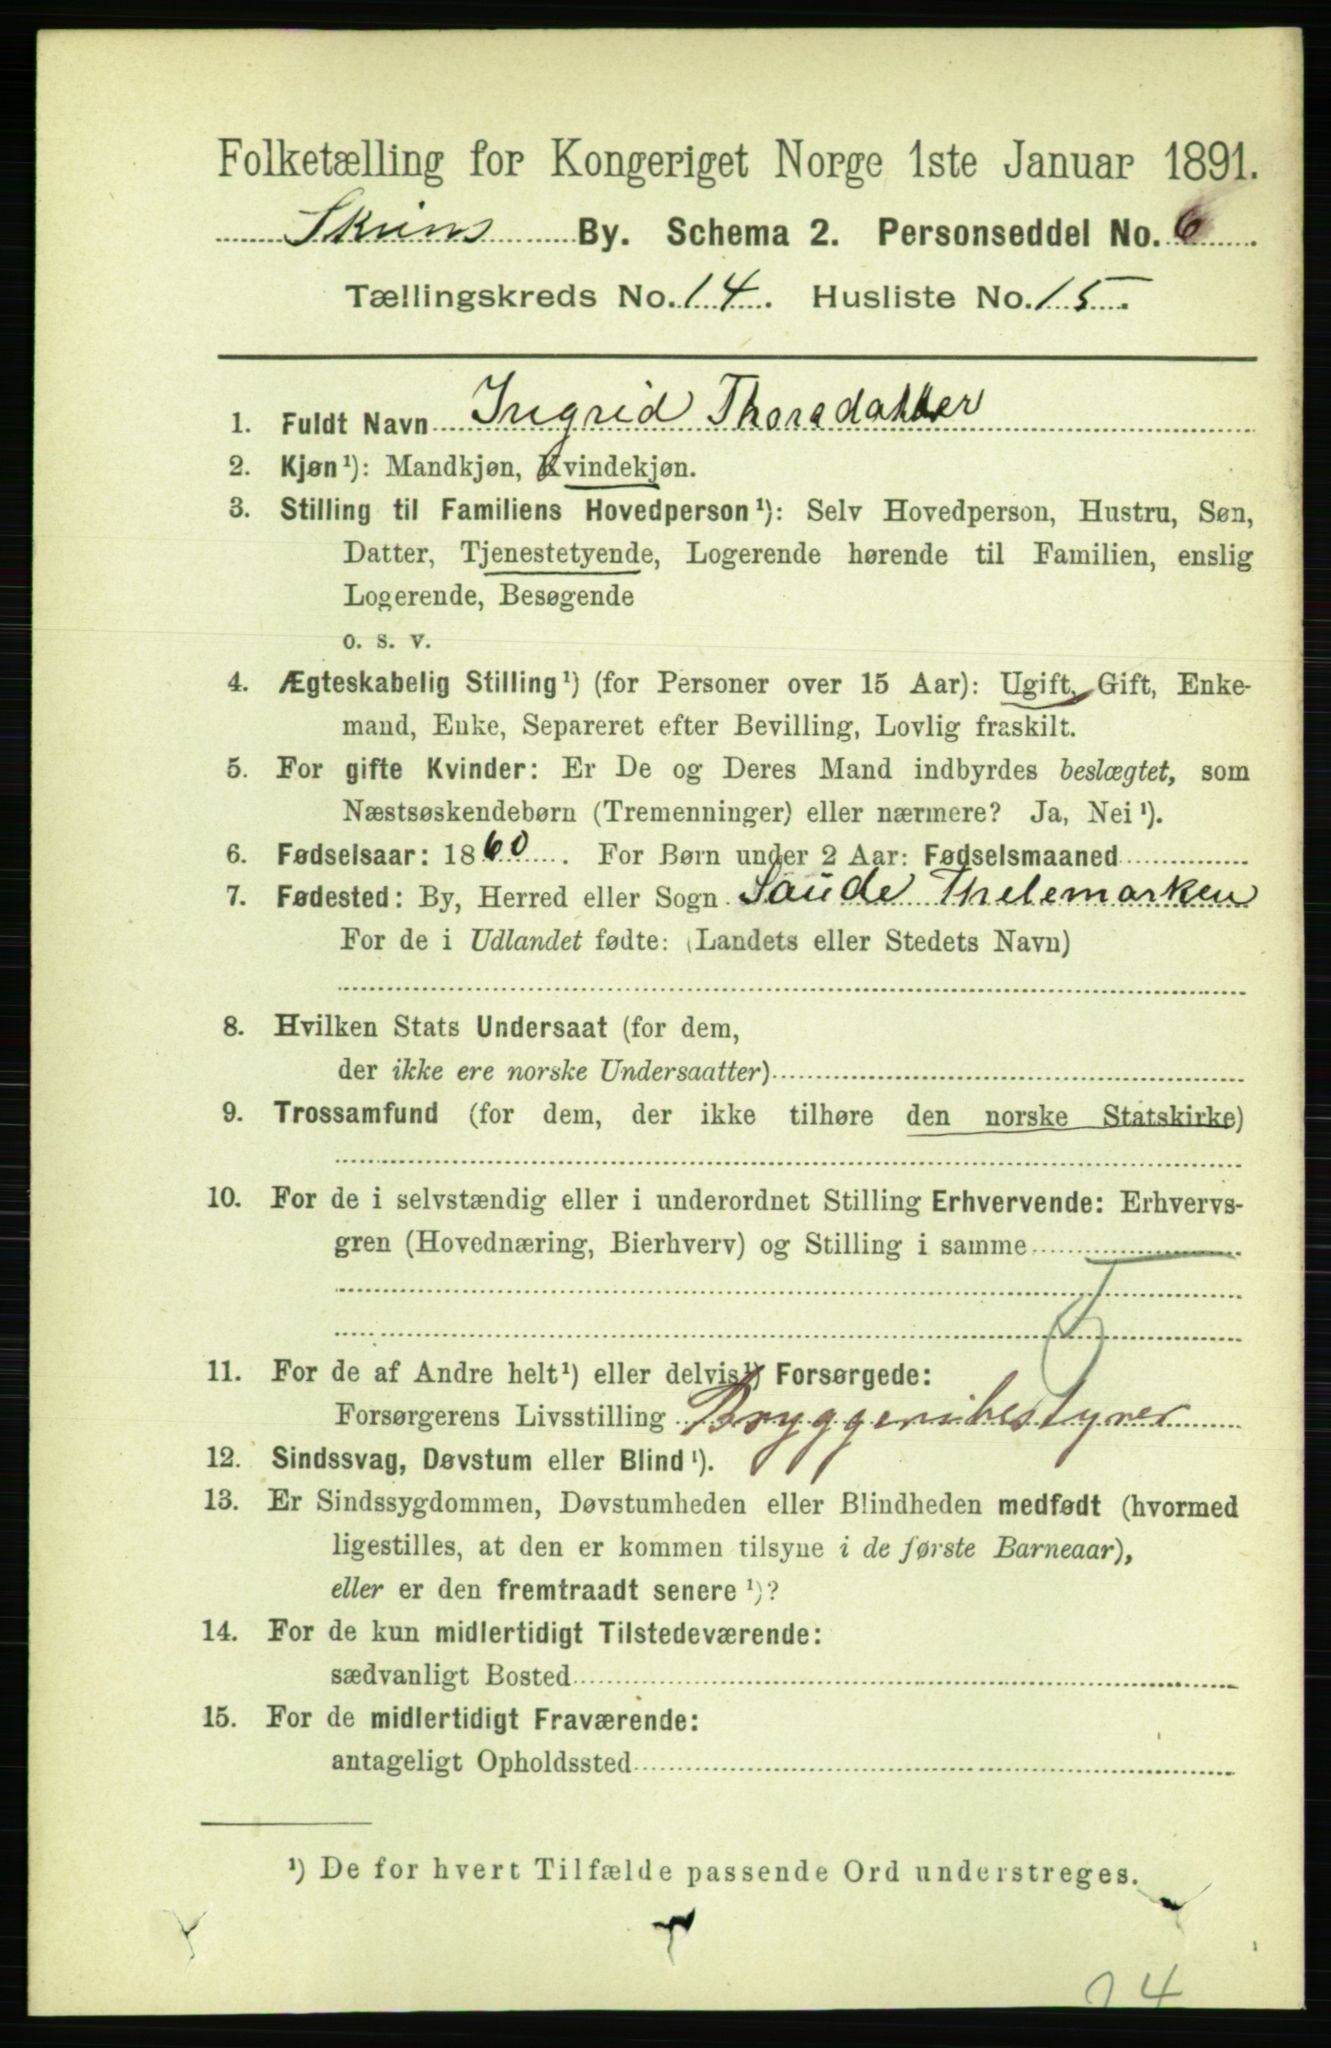 Folketælling for Kongeriget Norge 1ste Januar 1891.
Skiens By. Schema 2. Personseddel No. 6
Tællingskreds No. 14. Husliste No. 15.
1. Fuldt Navn Ingrid Thorsdatter
2. Kjøn¹): Mandkjøn, Kvindekjøn.
3. Stilling til Familiens Hovedperson¹): Selv Hovedperson, Hustru, Søn,
Datter, Tjenestetyende, Logerende hørende til Familien, enslig
Logerende, Besøgende
o. s. v.
4. Ægteskabelig Stilling¹) (for Personer over 15 Aar): Ugift, Gift, Enke-
mand, Enke, Separeret efter Bevilling, Lovlig fraskilt.
5. For gifte Kvinder: Er De og Deres Mand indbyrdes beslægtet, som
Næstsøskendebørn (Tremenninger) eller nærmere? Ja, Nei¹).
6. Fødselsaar: 1860. For Børn under 2 Aar: Fødselsmaaned
7. Fødested: By, Herred eller Sogn Saude Thelemarken
For de i Udlandet fødte: (Landets eller Stedets Navn)
8. Hvilken Stats Undersaat (for dem,
der ikke ere norske Undersaatter)
9. Trossamfund (for dem, der ikke tilhøre den norske Statskirke)
10. For de i selvstændig eller i underordnet Stilling Erhvervende: Erhvervs-
gren (Hovednæring, Bierhverv) og Stilling i samme
11. For de af Andre helt¹) eller delvis¹) Forsørgede:
Forsørgerens Livsstilling Bryggeribestyrer
12. Sindssvag, Døvstum eller Blind¹).
13. Er Sindssygdommen, Døvstumheden eller Blindheden medfødt (hvormed
ligestilles, at den er kommen tilsyne i de første Barneaar),
eller er den fremtraadt senere¹)?
14. For de kun midlertidigt Tilstedeværende:
sædvanligt Bosted
15. For de midlertidigt Fraværende:
antageligt Opholdssted
¹) De for hvert Tilfælde passende Ord understreges.
24